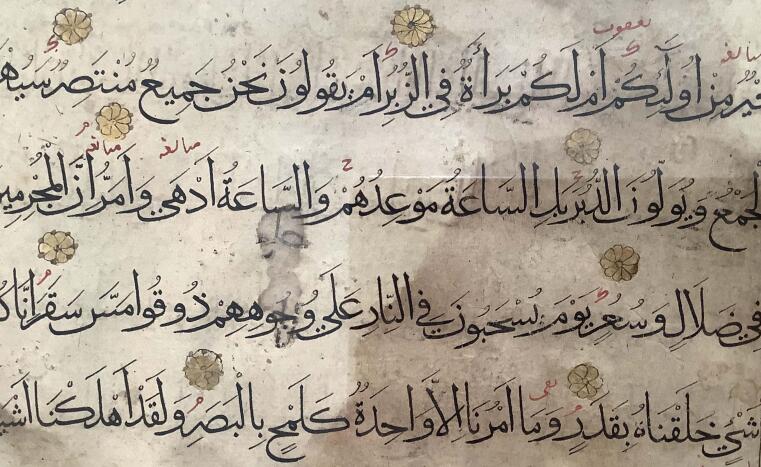 خَيْرٌ مِنْ اُولَٓئِكُمْ اَمْ لَكُمْ بَرَاَةٌ فِي الزُّبُرِ اَمْ يَقُولُونَ نَحْنُ جَمِيعٌ مُنْتَصِرٌ سَيُهْ
الجَمْعُ وَيُوَلُّونَ الدُّبُرَ بَلِ السَّاعَةُ مَوْعِدُهُمْ وَالسَّاعَةُ اَدْهَي وَاَمَرُّ اِنَّ الْمُجْرِمِينَ
فِي ضَلَالٍ وَسُعُرٍ يَوْمَ يُسْحَبُونَ فِي النَّارِ عَلَي وُجُوهِهِمْ ذُوقُوا مَسَّ سَقَرَ اِنَّا كُ
شَيْءٍ خَلَقْنَاهُ بِقَدَرٍ وَمَا اَمْرُنَا اِلَّا وَاحِدَةٌ كَلَمْحٍ بِالْبَصَرِ وَلَقَدْ اَهْلَكْنَا اَشْيَ